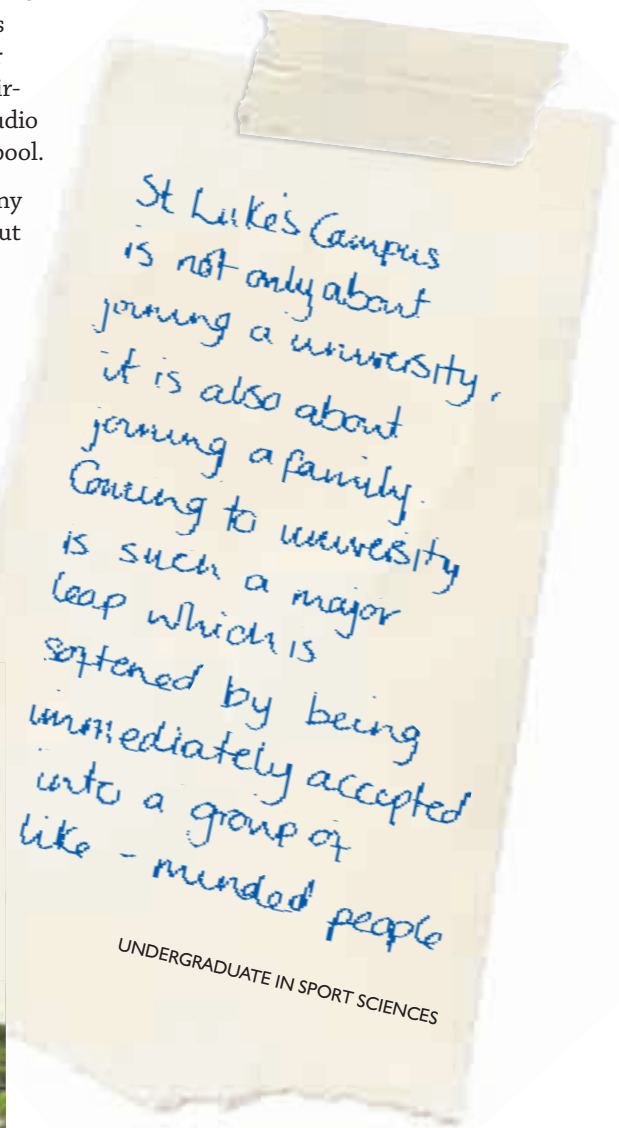 s
r
ir-
udio
pool.
ny
ut
St Luke's Campus
is not only about
joining a university,
it is also about
joining a family.
Coming to university
is such a major
leap which is
softened by being
immediately accepted
into a group of
like - minded people
UNDERGRADUATE IN SPORT SCIENCES